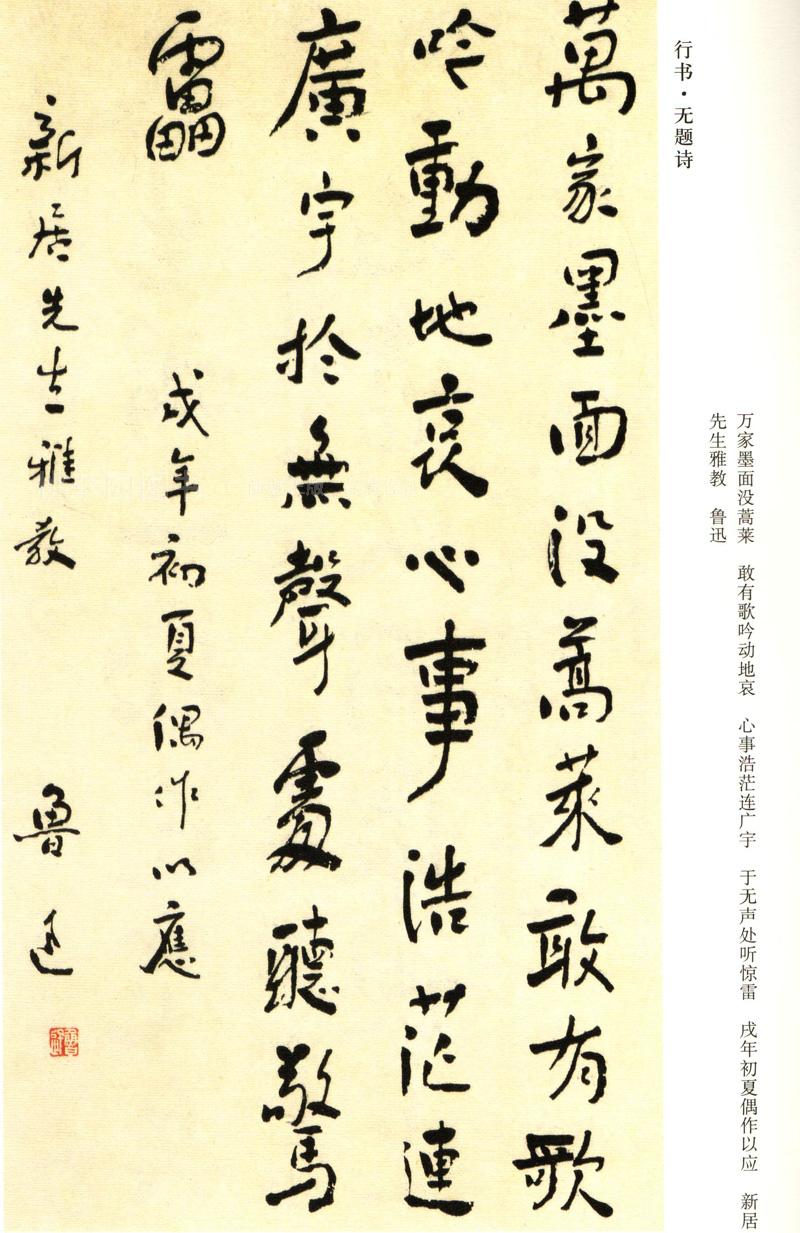 行书·无题诗
万家墨面没蒿莱 敢有歌吟动地哀 心事浩茫连广宇 于无声处听惊雷 戌年初夏偶作以应 新居
先生雅教 鲁迅
萬家墨面沒蒿萊敢有歌
吟動地哀心事浩茫連
廣宇於無聲處聽驚
靁
戌年初夏偶作以應
新居先生雅教
魯迅